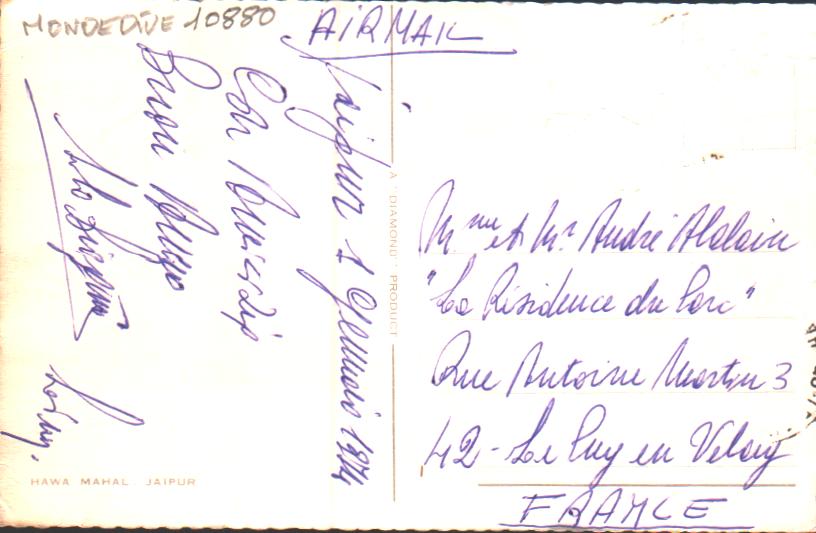 MONDEDIVE 10880
AIRMAIL
Jaipur 1 Gennaio 1974
Con Amicizia
Buon
A "DIAMOND" PRODUCT
HAWA MAHAL JAIPUR
Mme et Mr André
"La Résidence du Parc"
Rue Antoine Martin 3
42 - Le Puy en Velay
FRANCE